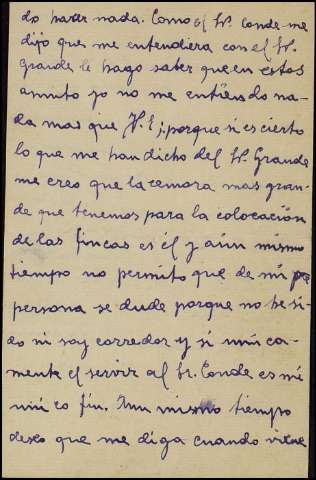 do hacer nada. Como el Sr. Conde me
dijo que me entendiera con el Sr.
Grande le hago saber que en estos
asunto yo no me entiendo na-
da mas que V. E; porque si es cierto
lo que me han dicho del Sr. Grande
me creo que la remora mas gran-
de que tenemos para la colocación
de las fincas es él y aún mismo
tiempo no permito que de mi
persona se dude porque no he si-
do ni soy corredor y si única-
mente el servir al Sr. Conde es mi
único fin. Aun mismo tiempo
deseo que me diga cuando viene